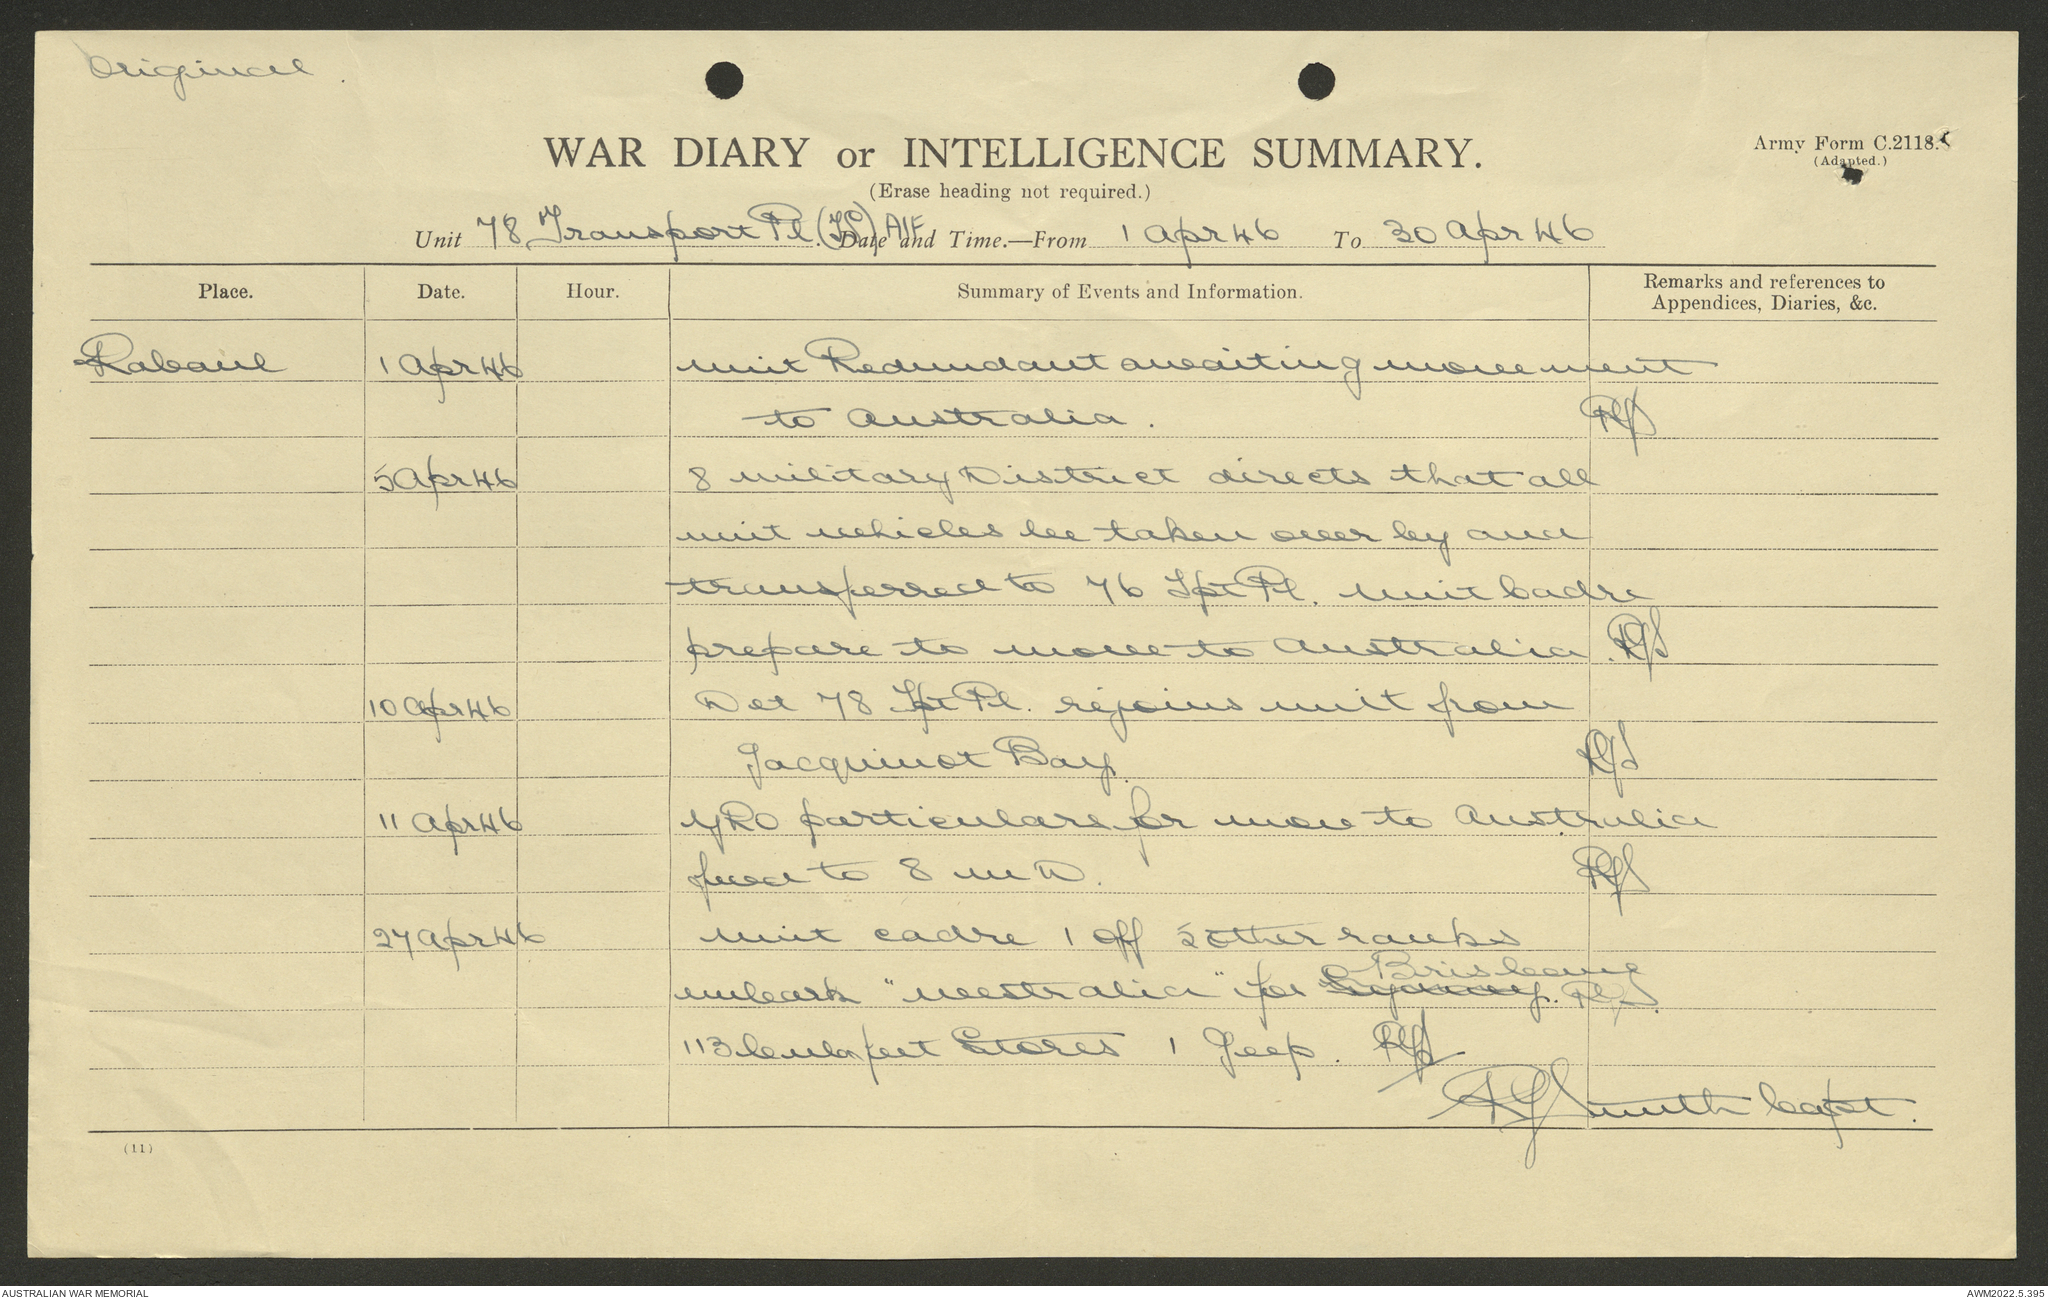 Original.
WAR DIARY or INTELLIGENCE SUMMARY.
Army Form C.2118.
(Adapted.)
(Erase heading not required.)
Unit 78 Transport Pl AIF Date and Time.—From 1 Apr 46 To 30 Apr 46
Place. Date. Hour. Summary of Events and Information. Remarks and references to
Appendices, Diaries, &c.
Rabaul 1 Apr 46 unit Redundant awaiting movement
to Australia. RGS
5 Apr 46 8 military District directs that all
unit vehicles be taken over by and
transferred to 76 Tpt Pl. unit Cadre
prepare to move to Australia. RGS
10 Apr 46 Det 78 Tpt Pl. rejoins unit from
Jacquinot Bay. RGS
11 Apr 46 particulars for move to Australia
fwd to 8 MD. RGS
27 Apr 46 unit cadre 1 off 5 other ranks
Brisbane
embark "Westralia" for Sydney. RGS
113 cub feet Stores 1 Jeep. RGS
RGSmith Capt.
(11)
AUSTRALIAN WAR MEMORIAL
AWM2022.5.395